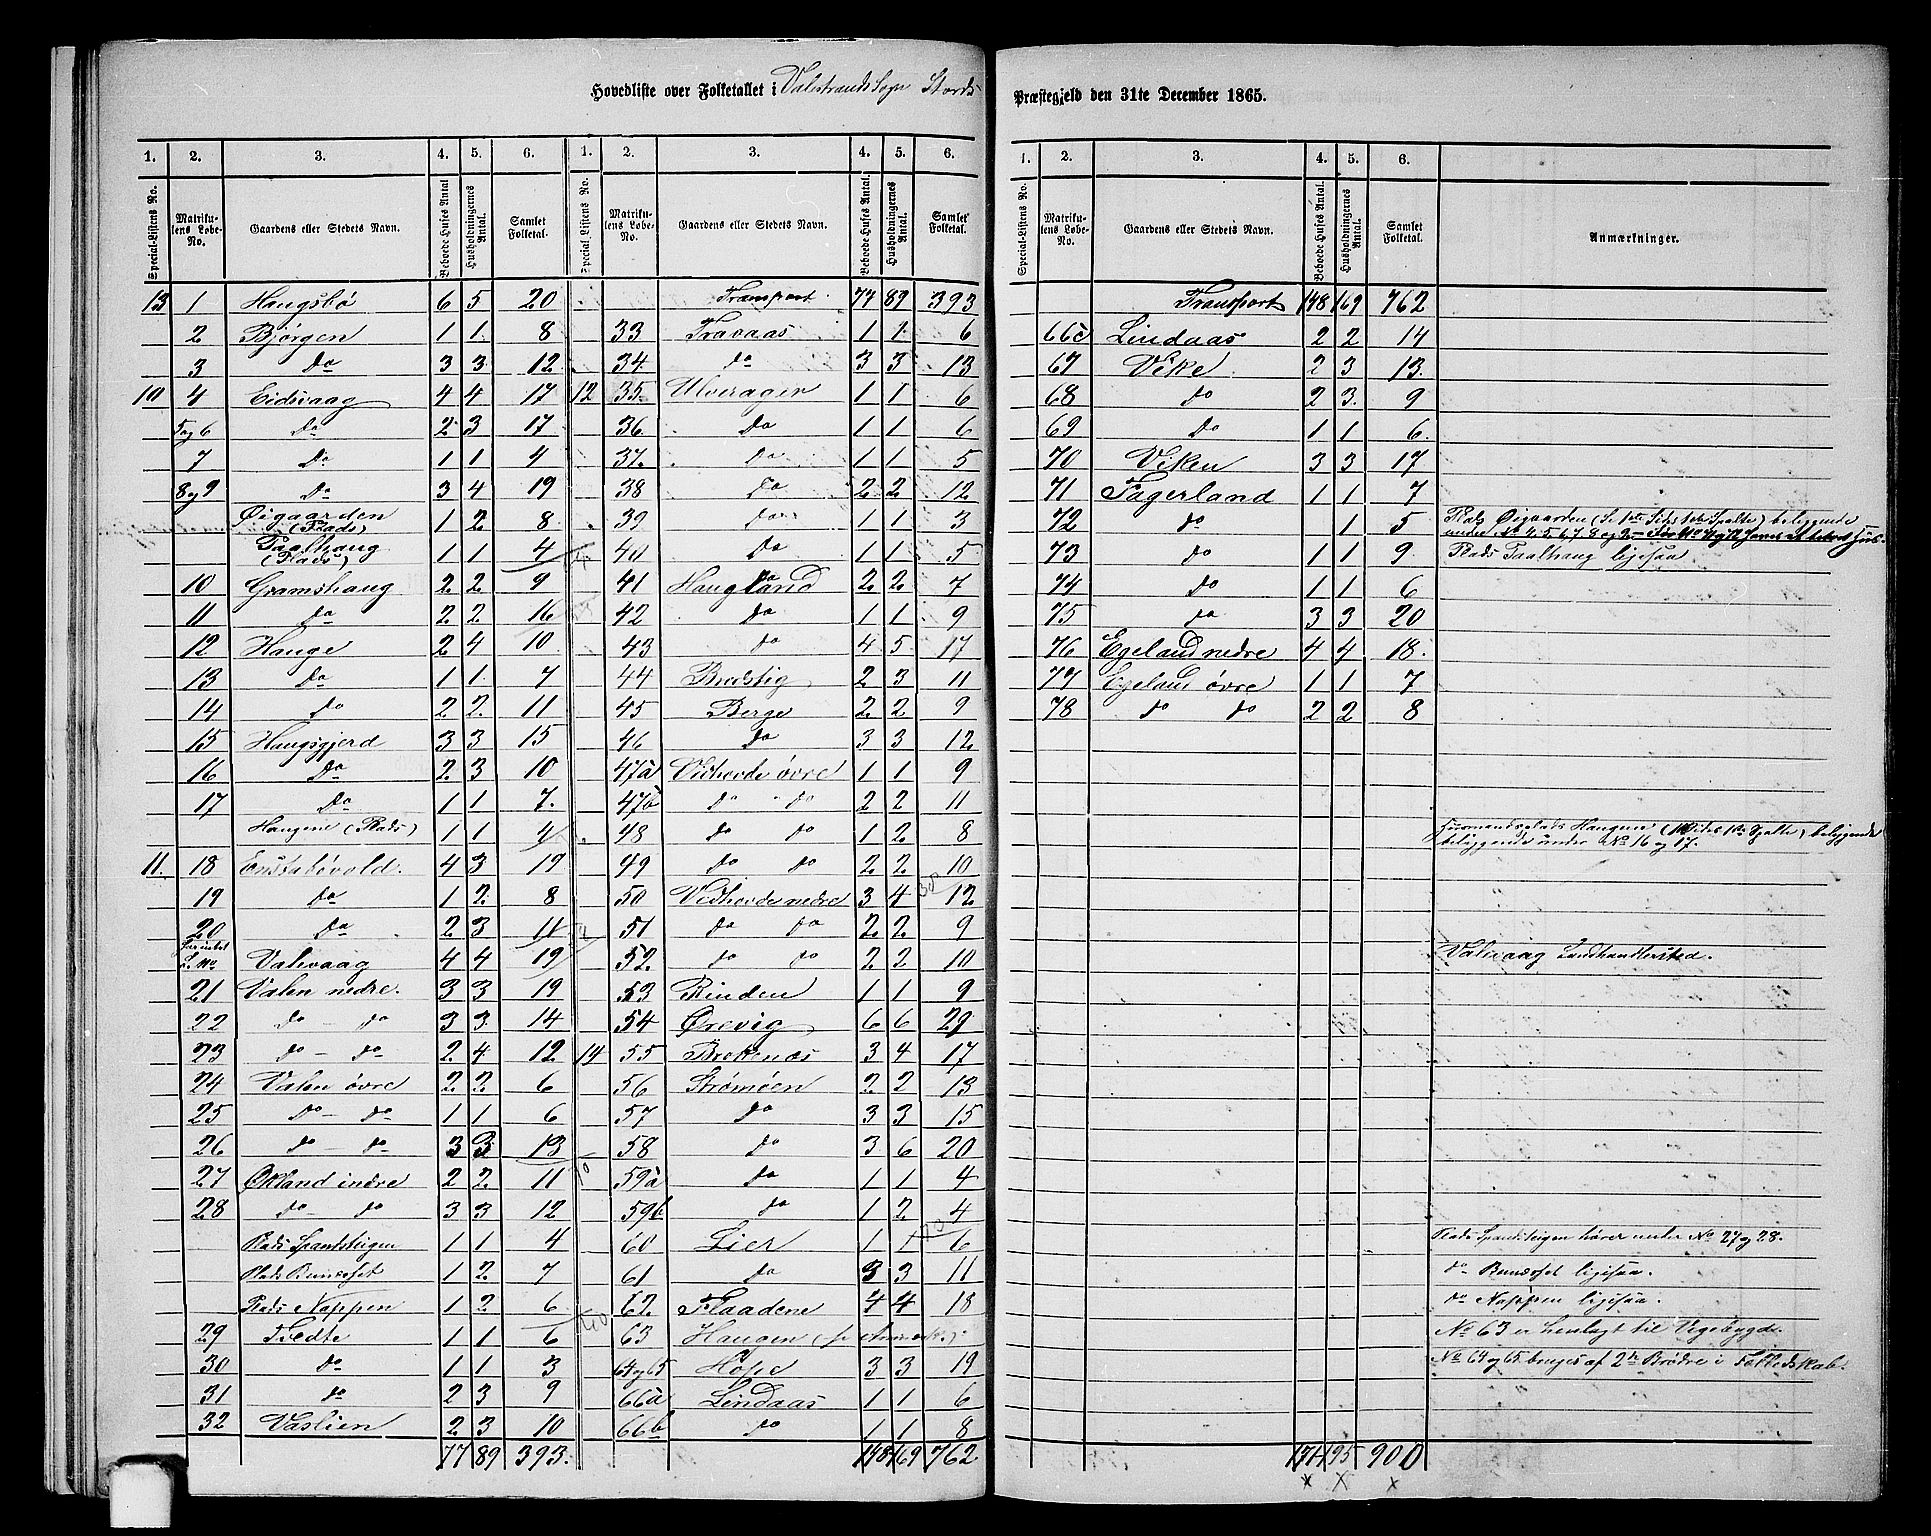 Hovedliste over Folketallet i Valestrands Sogn Stords Præstegjeld den 31te December 1865.
1. 2. 3. 4. 5. 6. 1. 2. 3. 4. 5. 6.
Special-Listens No. Matrikulens Løbe-No. Gaardens eller Stedets Navn. Beboede Huses Antal Husholdningernes Antal. Samlet Folketal. Special-Listens No. Matrikulens Løbe-No. Gaardens eller Stedets Navn. Beboede Huses Antal. Husholdningernes Antal. Samlet Folketal.
13 1 Haugsbø 6 5 20 Transport 77 89 393
2 Bjørgen 1 1 8 33 Travaas 1 1 6
3 do 3 3 12 34 do 3 3 13
10 4 Eidsvaag 4 4 17 12 35 Ulveragen 1 1 6
5 og 6 do 2 3 17 36 do 1 1 6
7 do 1 1 4 37 do 1 1 5
8 og 9 do 3 4 19 38 do 2 2 12
Øigaarden (Plads) 1 2 8 39 do 1 1 3
Taalhaug (Plads) 1 1 4 40 do 1 1 5
10 Gramshaug 2 2 9 41 Haugland 2 2 7
11 do 2 2 16 42 do 1 1 9
12 Hauge 2 4 10 43 do 4 5 17
13 do 1 1 7 44 Bredstig 2 3 11
14 do 2 2 11 45 Berge 2 2 9
15 Haugsgjerd 3 3 15 46 do 3 3 12
16 do 2 3 10 47a Vidhovde øvre 1 1 9
17 do 1 1 7 47b do do 2 2 11
Haugene (Plads) 1 1 4 48 do do 1 2 8
11 18 Enstabøvold 4 3 19 49 do do 2 2 10
19 do 1 2 8 50 Vidhovde nedre 3 4 12
20 do 2 3 11 51 do do 2 2 9
L. No Valevaag 4 4 19 52 do do 2 2 10
21 Valen nedre 3 3 19 53 Rinden 1 1 9
22 do - do 3 3 14 54 Ørevig 6 6 29
23 do - do 2 4 12 14 55 Brekenæs 3 4 17
24 Valen øvre 2 2 6 56 Strømøen 2 2 13
25 do - do 1 1 6 57 do 3 3 15
26 do - do 3 3 13 58 do 3 6 20
27 Økland indre 2 2 11 59a do 1 1 4
28 do do 3 3 12 59b do 1 2 4
Plads Spandsteigen 1 1 4 60 Lier 1 1 6
Plads Bunæset 1 2 7 61 do 3 3 11
Plads Nappen 1 2 6 62 Flaadene 4 4 18
29 Tvedte 1 1 6 63 Haugen (se Anmærk.)
30 do 1 1 3 64 og 65 Hope 3 3 19
31 do 2 3 9 66a Lindaas 1 1 6
32 Vaslien 2 3 10 66b do 1 1 8
77 89 393. 148 169 762
1. 2. 3. 4. 5. 6.
Special-Listens No. Matrikulens Løbe-No. Gaardens eller Stedets Navn. Beboede Huses Antal. Husholdningernes Antal. Samlet Folketal. Anmærkninger.
Transport 148 169 762
66c Lindaas 2 2 14
67 Vike 2 3 13
68 do 2 3 9
69 do 1 1 6
70 Viken 3 3 17
71 Fagerland 1 1 7
72 do 1 5 Plads Øigaarden (Se 1ste Sides 1ste Spalte) beliggende
under No 4, 5, 6, 7, 8 og 9 - For No 71 og 72 et beboet Huus.
73 do 1 1 9 Plads Taalhaug ligesaa
74 do 1 1 6
75 do 3 3 20
76 Egeland nedre 4 4 18
77 Egeland øvre 1 1 7
78 do do 2 2 8
Huusmandsplads Haugene (1ste Sides 1ste Spalte) beliggende
beliggende under No 16 og 17.
Valevaag Landhandlersted.
Plads Spandsteigen hører under No 27 og 28.
do Bunæset ligesaa.
do Nappen ligesaa.
No 63 er henlagt til Vigebygd.
No 64 og 65 bruges af 2de Brødre i Fælledskab.
171 195 900
x x x